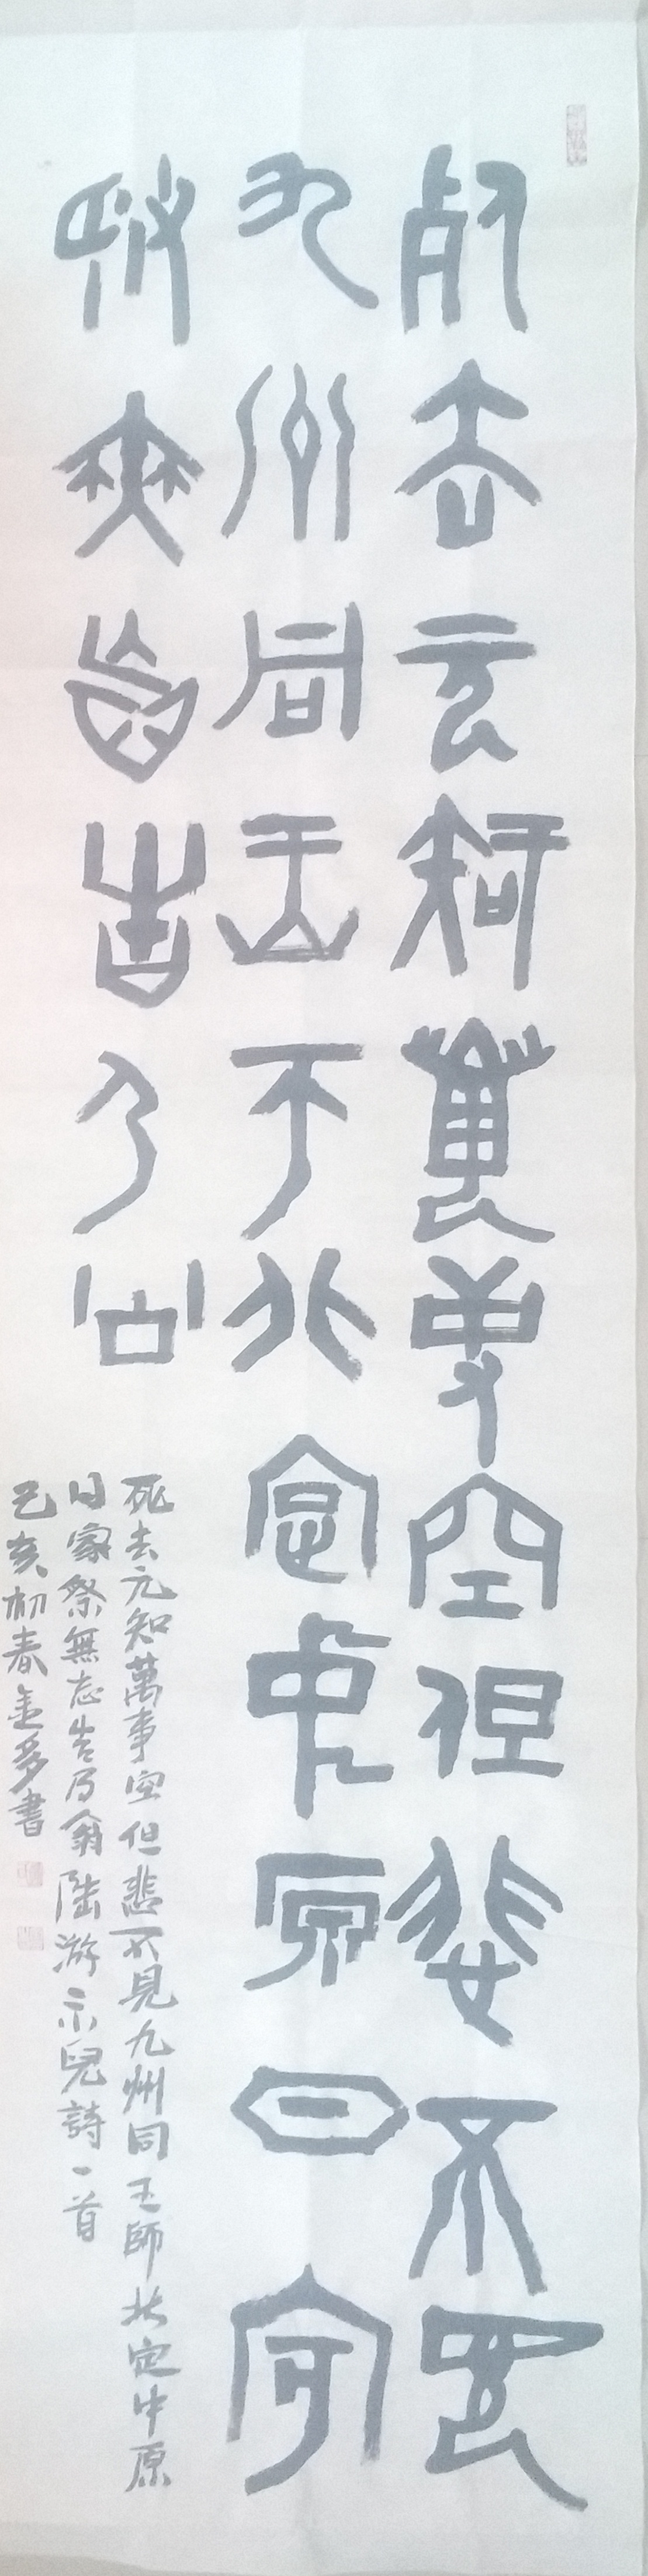 死去元知萬事空但悲不見
九州同王師北定中原日家
祭無忘告乃翁
死去元知萬事空但悲不見九州同王師北定中原
日家祭無忘告乃翁陸游示兒詩一首
己亥初春金多書